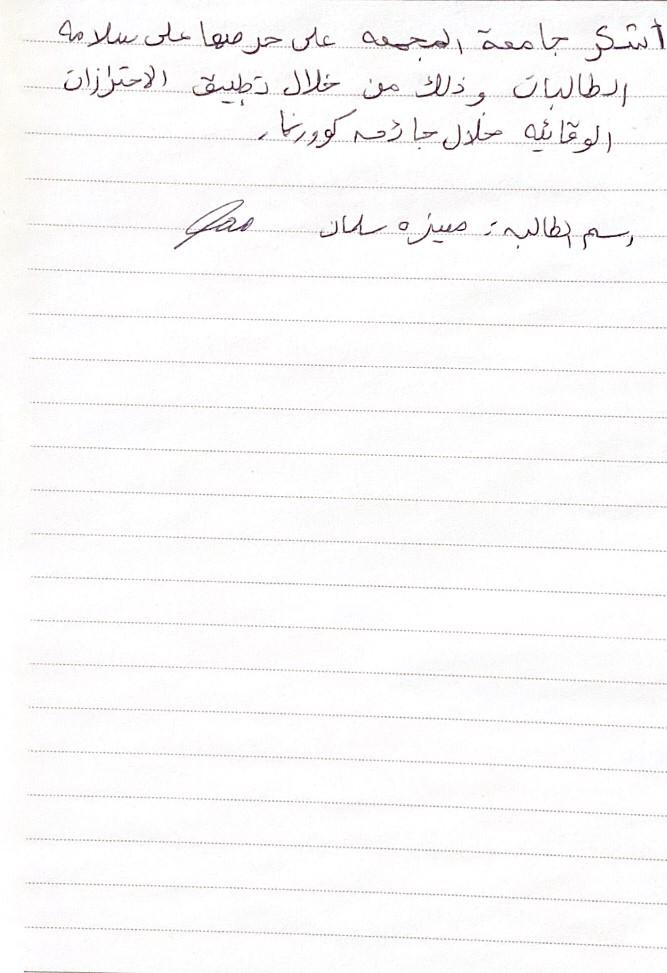 أشكر جامعة المجمعه على حرصها على سلامه
الطالبات وذلك من خلال تطبيق الاحترازات
الوقائيه خلال جائحه كوورنا.
إسم الطالبة : منيزه سلمان